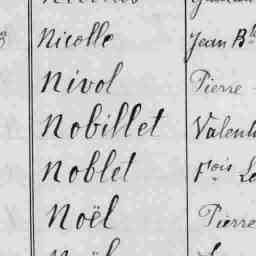 Nicolle Jean Bte
Nivol Pierre
Nobillet
Noblet Fois
Noël Pierre